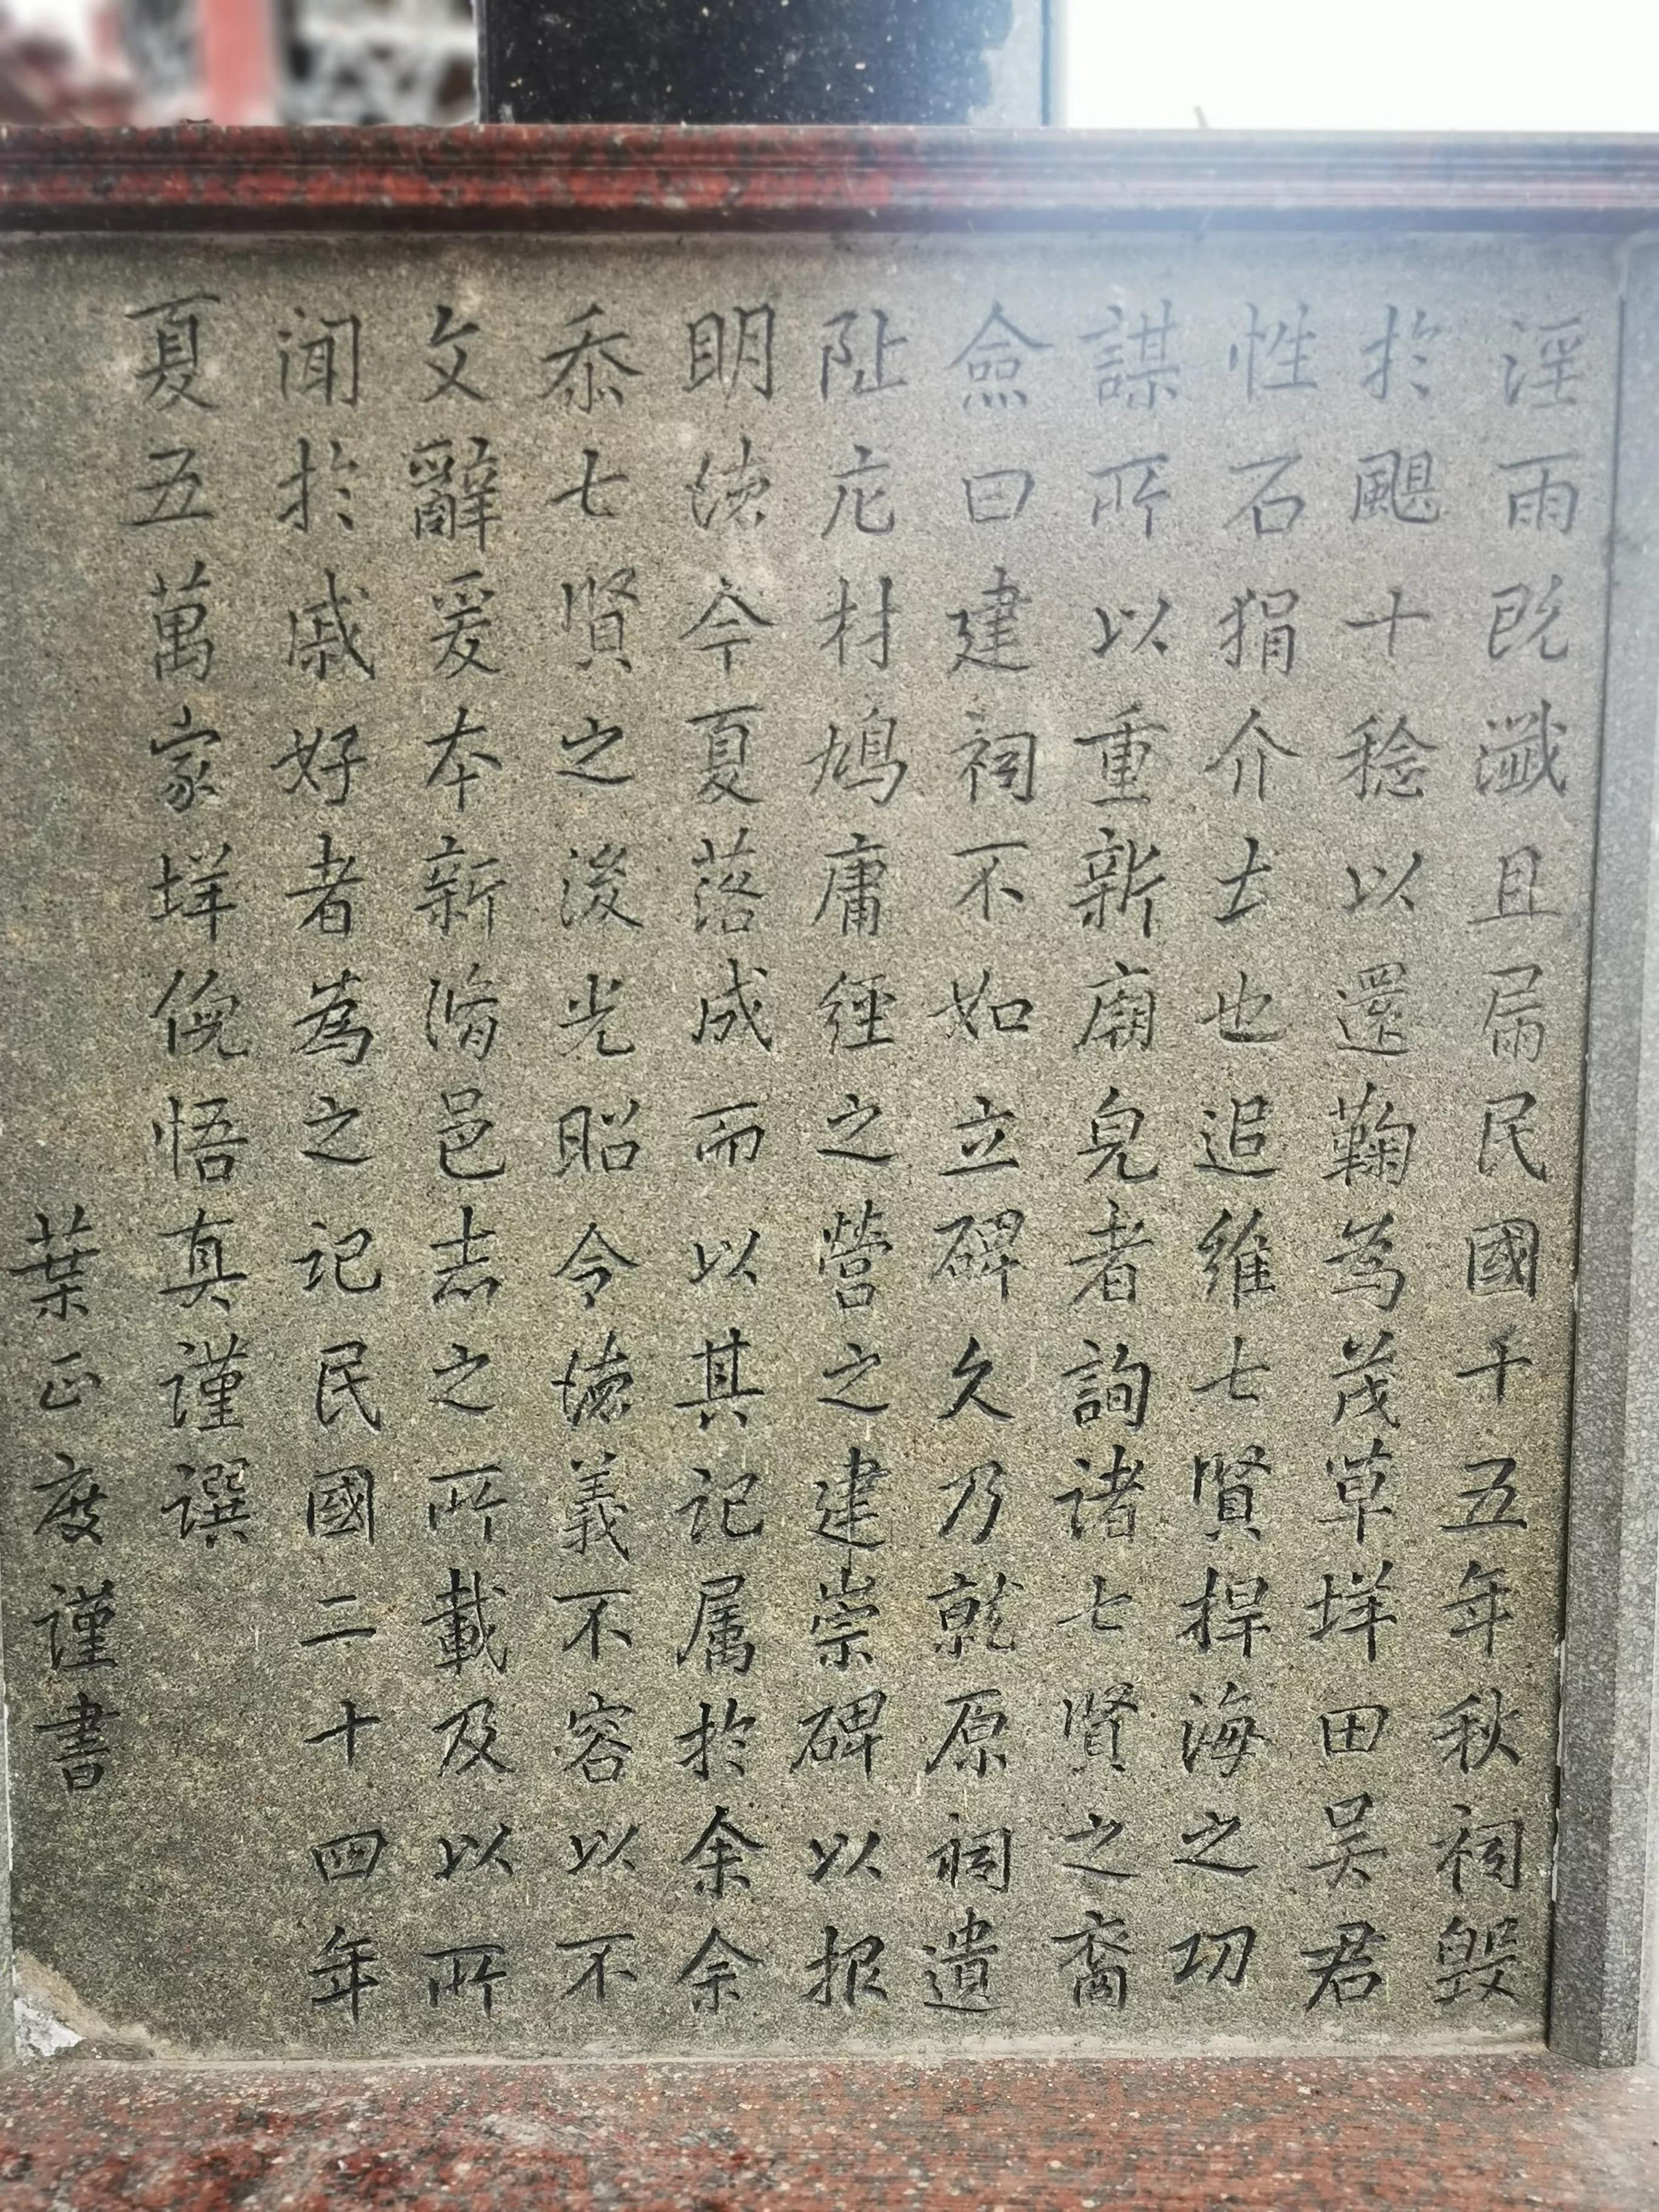 淫雨既瀸且屚民國十五年秋祠毀
於颶十稔以還鞠為茂草垟田吴君
性石狷介士也追維七賢捍海之功
謀所以重新廟皃者詢諸七賢之裔
僉曰建祠不如立碑久乃就原祠遺
阯庀材鳩庸經之營之建崇碑以报
明德今夏落成而以其记属於余余
忝七賢之後光昭令德義不容以不
文辭爰本新脩邑志之所載及以所
闻於戚好者為之记民國二十四年
夏五萬家垟倪悟真謹譔
葉正度谨書